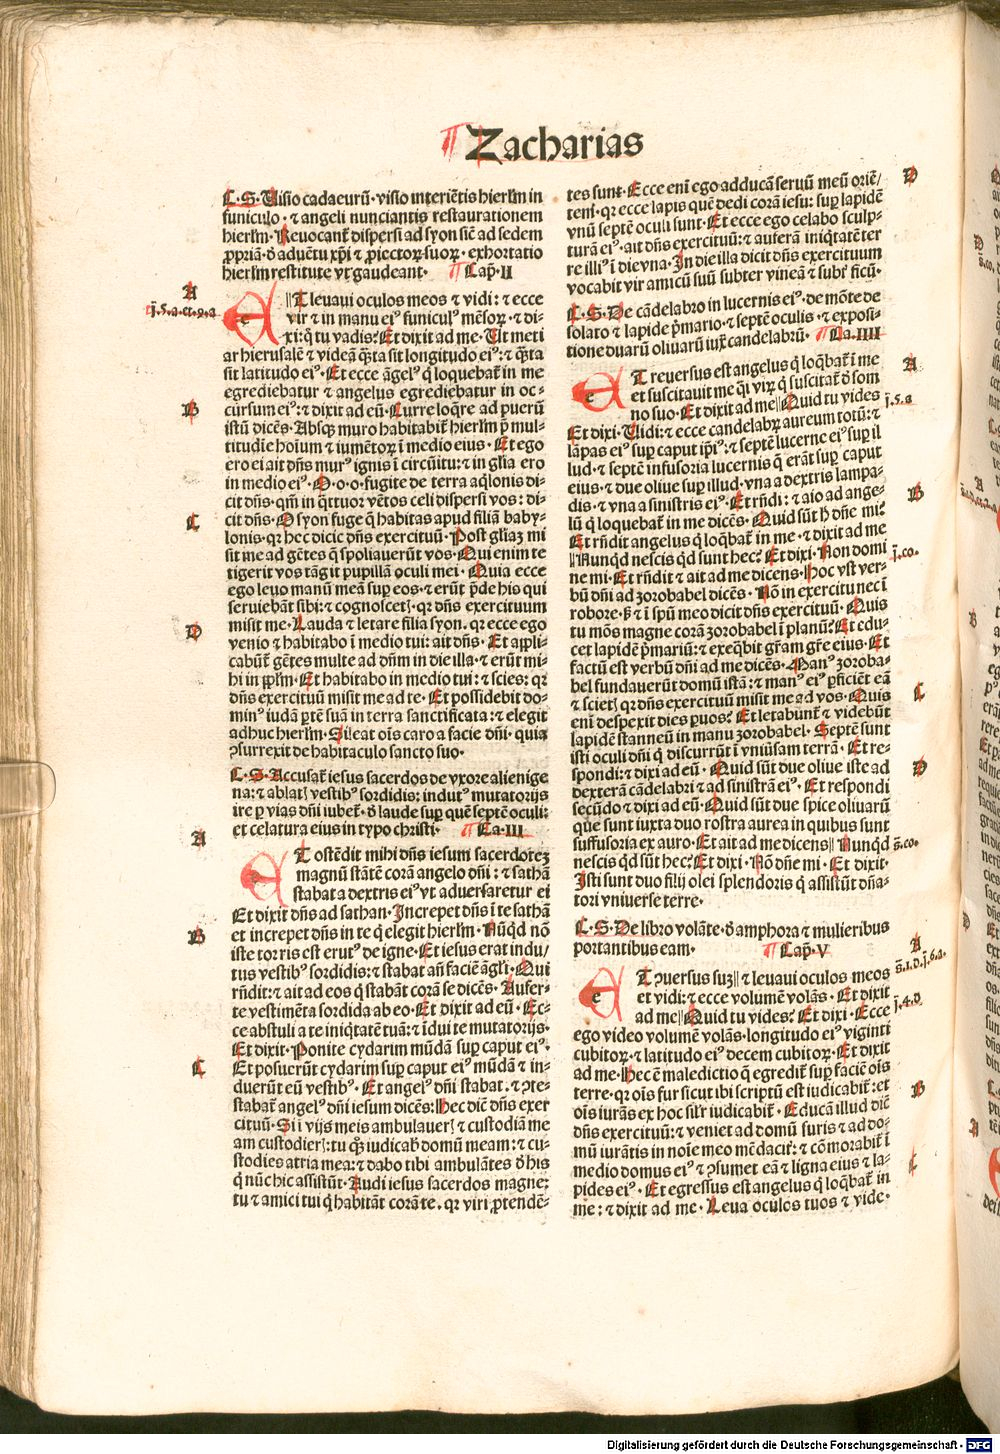 Zacharias
C·S·Uisio cadaeurũ·visio interiẽtis hierłm in
funiculo·⁊ angeli nunciantis restaurationem
hierłm·Reuocant̃ dispersi ad syon siẽ ad sedem
ꝓpriã·ð aduẽtu xp̃i ⁊ ꝓiectoꝝ suoꝝ·exhortatio
hierłm restitute vt gaudeant· Cap̃·II
A
ī·5·a·et·9·a
ET leuaui oculos meos ⁊ vidi: ⁊ ecce
vir ⁊ in manu eiꝰ funiculꝰ mẽsoꝝ·⁊ di-
xi:q̃ tu vadis? Et dixit ad me·Ut meti
ar hierusalẽ ⁊ videã q̃ta sit longitudo eiꝰ:⁊ q̃ta
sit latitudo eiꝰ·Et ecce ãgelꝰ q̃ loquebat̃ in me
egrediebatur ⁊ angelus egrediebatur in oc-
B
cursum eiꝰ:⁊ dixit ad eũ·Curre loq̃re ad puerũ
istũ dicẽs·Absq; muro habitabit̃ hierłm p̃ mul-
titudiẽ hoĩum ⁊ iumẽtoꝝ ĩ medio eius·Et ego
ero ei ait dñs murꝰ ignis ĩ circũitu:⁊ in głia ero
in medio eiꝰ·O·o·o·fugite de terra aq̃lonis di-
cit dñs·qm̃ in q̃ttuor vẽtos celi dispersi vos: di-
C
cit dñs·O syon fuge q̃ habitas apud filiã baby-
lonis·qꝛ hec dicic dñs exercituũ·Post głiaꝫ mi
sit me ad gẽtes q̃ spoliauerũt vos·Qui enim te
tigerit vos tãgit pupillã oculi mei·Quia ecce
ego leuo manũ meã sup̃ eos·⁊ erũt p̃de his qui
seruiebãt sibi:⁊ cognoscet}·qꝛ dñs exercituum
D
misit me·Lauda ⁊ letare filia syon·qꝛ ecce ego
venio ⁊ habitabo ĩ medio tui: ait dñs·Et appli-
cabũt̃ gẽtes multe ad dñm in die illa·⁊ erũt mi-
hi in pp̃łm·Et habitabo in medio tui:⁊ scies: qꝛ
dñs exercituũ misit me ad te·Et possidebit do-
minꝰ iudã ꝑtẽ suã in terra sanctificata:⁊ elegit
adhuc hierłm·Sileat oĩs caro a facie dñi·quia
ꝯsurrexit de habitaculo sancto suo·
C·S·Accusat̃ iesus sacerdos de vxore alienige
na:⁊ ablat} vestibꝰ sordidis: indutꝰ mutatorijs
ire p̃ vias dñi iubet̃·ð laude sup̃ quẽ septẽ oculi:
et celatura eius in typo christi· Ca·III
A
ET ostẽdit mihi dñs iesum sacerdoteꝫ
magnũ stãtẽ corã angelo dñi:⁊ sathã
stabat a dextris eiꝰ vt aduersaretur ei
Et dixit dñs ad sathan·Increpet dñs ĩ te sathã
B
et increpet dñs in te q̃ elegit hierłm·Nũqd̃ nõ
iste torris est erutꝰ de igne·Et iesus erat indu/
tus vestibꝰ sordidis:⁊ stabat añ faciẽ ãgłi·Qui
rñdit:⁊ ait ad eos q̃ stabãt corã se dicẽs·Aufer-
te vestimẽta sordida ab eo·Et dixit ad eũ·Ec-
ce abstuli a te iniq̃tatẽ tuã:⁊ ĩdui te mutatorijs·
Et dixit·Ponite cydarim mũdã sup̃ caput eiꝰ·
C
Et posuerũt cydarim sup̃ caput eiꝰ mũdã ⁊ in-
duerũt eũ vestibꝰ·Et angelꝰ dñi stabat·⁊ ꝯte-
stabat̃ angelꝰ dñi iesum dicẽs: Hec diẽ dñs exer
cituũ·Si ĩ vijs meis ambulauer} ⁊ custodiã me
am custodier}: tu q̃; iudicab̃ domũ meam:⁊ cu-
stodies atria mea:⁊ dabo tibi ambulãtes ð his
q̃ nũc hic assistũt·Audi iesus sacerdos magne:
tu ⁊ amici tui q̃ habitãt corã te·qꝛ viri ꝓtendẽ-
D
tes sunt·Ecce enĩ ego adducã seruũ meũ oriẽ/
tem·qꝛ ecce lapis quẽ dedi corã iesu: sup̃ lapidẽ
vnũ septẽ oculi sunt·Et ecce ego celabo sculp-
turã eiꝰ·ait dñs exercituũ:⁊ auferã iniq̃tatẽ ter
re illiꝰ ĩ die vna·In die illa dicit dñs exercituum
vocabit vir amicũ suũ subter vineã ⁊ subt̃ ficũ·
C·S·De cãdelabro in lucernis eiꝰ·de mõte de
solato ⁊ lapide p̃mario·⁊ septẽ oculis·⁊ exposi-
tione duarũ oliuarũ iux̃ candelabrũ· Ca·IIII
A
ET reuersus est angelus q̃ loq̃bat̃ ĩ me
et suscitauit me q̃si viꝝ q̃ suscitat̃ ð som
ī·5·a
no suo·Et dixit ad me Quid tu vides
Et dixi·Uidi:⁊ ecce candelabꝝ aureum totũ:⁊
lãpas eiꝰ sup̃ caput ip̃iꝰ:⁊ septẽ lucerne eiꝰ sup̃ il
lud·⁊ septẽ infusoria lucernis q̃ erãt sup̃ caput
eius·⁊ due oliue sup̃ illud·vna a dextris lampa-
B
dis·⁊ vna a sinistris eiꝰ·Et rñdi:⁊ aio ad ange-
lũ q̃ loquebat̃ in me dicẽs·Quid sũt h̃ dñe mi?
Et rñdit angelus q̃ loq̃bat̃ in me·⁊ dixit ad me
ī·co·
Nunqd̃ nescis qd̃ sunt hec? Et dixi·Non domi
ne mi·Et rñdit ⁊ ait ad me dicens·Hoc vst ver-
bũ dñi ad zorobabel dicẽs·Nõ in exercitu nec ĩ
robore·ß ⁊ ĩ spũ meo dicit dñs exercituũ·Quis
tu mõs magne corã zorobabel ĩ planũ? Et edu-
cet lapidẽ p̃mariũ:⁊ exeq̃bit gr̃am gr̃e eius·Et
factũ est verbũ dñi ad me dicẽs·Manꝰ zoroba-
bel fundauerũt domũ istã:⁊ manꝰ eiꝰ ꝑficiẽt eã
C
⁊ sciet} qꝛ dñs exercituũ misit me ad vos·Quis
enĩ despexit dies ꝑuos? Et letabũnt̃ ⁊ videbũt
lapidẽ stanneũ in manu zorobabel·Septẽ sunt
isti oculi dñi q̃ discurrũt ĩ vniũsam terrã·Et re-
D
spondi:⁊ dixi ad eũ·Quid sũt due oliue iste ad
dexterã cãdelabri ⁊ ad sinistrã eiꝰ·Et respondi
secũdo ⁊ dixi ad eũ·Quid sũt due spice oliuarũ
que sunt iuxta duo rostra aurea in quibus sunt
suffusoria ex auro·Et ait ad me dicens Nunqd̃
s̃·co·
nescis qd̃ sũt hec? Et dixi·Nõ dñe mi·Et dixit·
Isti sunt duo filij olei splendoris q̃ assistũt dña-
tori vniuerse terre·
C·S·De libro volãte·ð amphora ⁊ mulieribus
portantibus eam· Cap̃·V
A
s̃·1·d·ī·6·a·
ET ꝯuersus suꝫ ⁊ leuaui oculos meos
et vidi:⁊ ecce volumẽ volãs·Et dixit
ī·4·d
ad me Quid tu vides? Et dixi·Ecce
ego video volumẽ volãs·longitudo eiꝰ viginti
cubitoꝝ·⁊ latitudo eiꝰ decem cubitoꝝ·Et dixit
ad me·Hec ẽ maledictio q̃ egredit̃ sup̃ faciẽ oĩs
B
terre·qꝛ oĩs fur sicut ibi scriptũ est iudicabit̃: et
oĩs iurãs ex hoc siłr iudicabit̃·Educã illud diẽ
dñs exercituũ:⁊ veniet ad domũ furis ⁊ ad do-
mũ iurãtis in noĩe meo mẽdacit̃:⁊ cõmorabit̃ ĩ
C
medio domus eiꝰ ⁊ ꝯsumet eã ⁊ ligna eius ⁊ la-
pides eiꝰ·Et egressus est angelus q̃ loq̃bat̃ in
me:⁊ dixit ad me·Leua oculos tuos ⁊ vide·
Digitalisierung gefördert durch die Deutsche Forschungsgemeinschaft - DFG